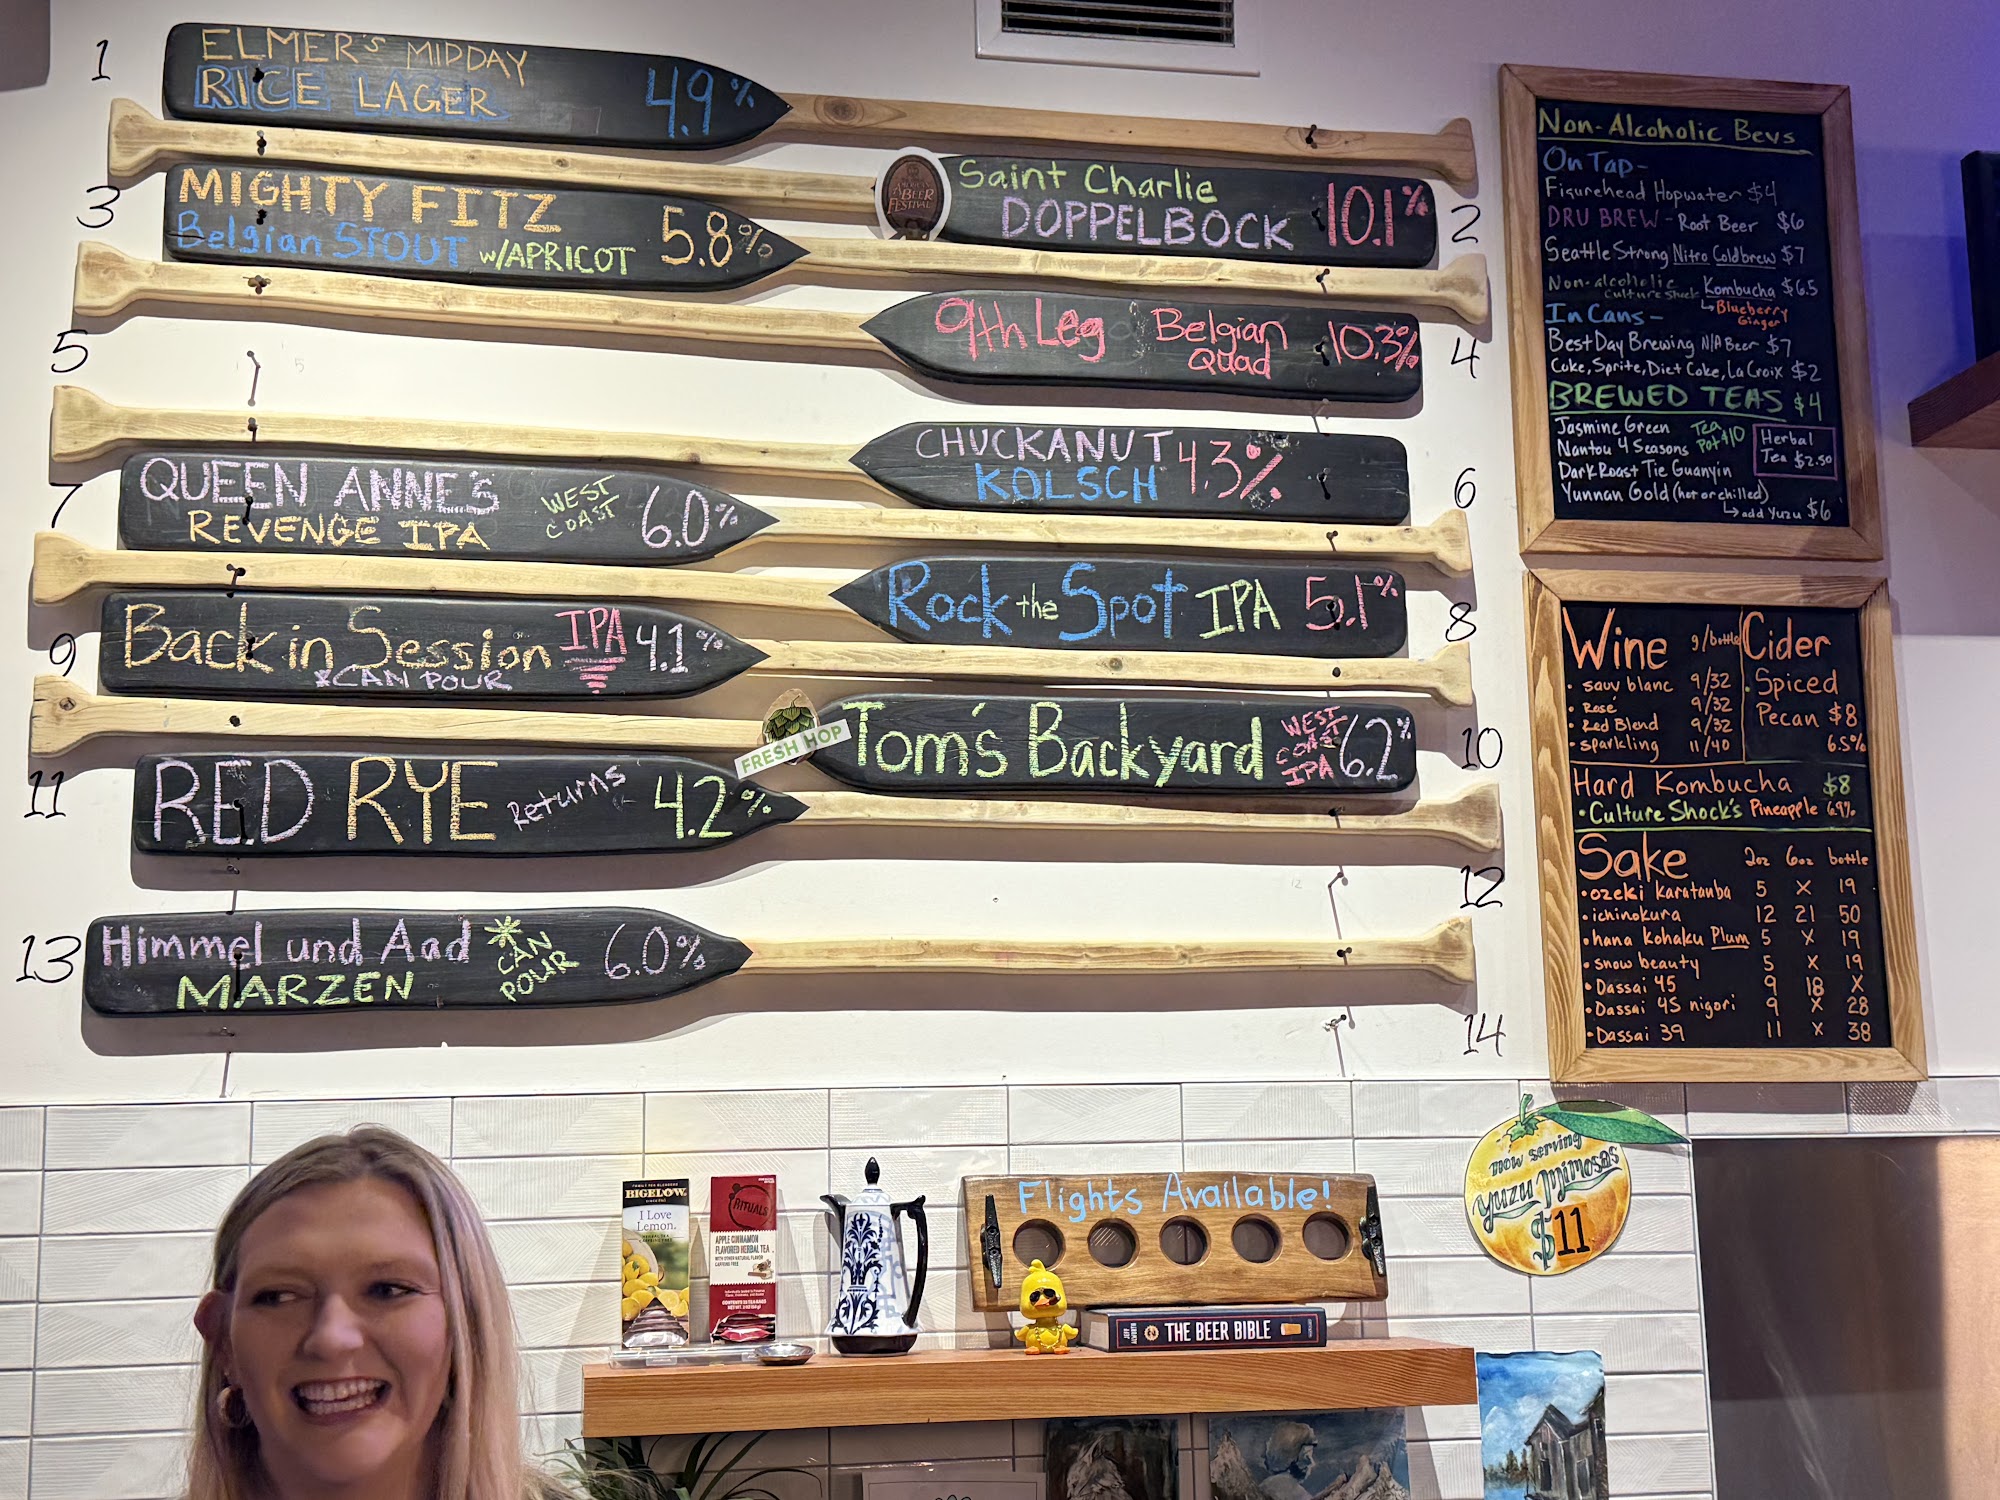 1
ELMER'S MIDDAY
RICE LAGER
4.9%
3
MIGHTY FITZ
Belgian STOUT w/APRICOT
5.8%
Saint Charlie
DOPPELBOCK
10.1%
2
9th Leg
Belgian
Quad
10.3%
4
5
CHUCKANUT
KOLSCH
4.3%
6
7
QUEEN ANNE'S
REVENGE IPA
WEST
COAST
6.0%
Rock the Spot IPA 5.1%
8
9
Back in Session
IPA
*CAN POUR
4.1%
FRESH HOP
Tom's Backyard
WEST
COAST
IPA
6.2%
10
11
RED RYE Returns 4.2%
12
13
Himmel und Aad
MARZEN
* CAN
POUR
6.0%
14
Non-Alcoholic Bevs
On Tap-
Figurehead Hopwater $4
DRU BREW - Root Beer $6
Seattle Strong Nitro Coldbrew $7
Non-alcoholic
Culture Shock Kombucha $6.5
Blueberry
Ginger
In Cans-
Best Day Brewing N/A Beer $7
Coke, Sprite, Diet Coke, La Croix $2
BREWED TEAS $4
Jasmine Green
Nantou 4 Seasons
Tea
Pot $10
Dark Roast Tie Guanyin
Herbal
Tea $2.50
Yunnan Gold (hot or chilled)
add Yuzu $6
Wine g/bottle
• sauv blanc 9/32
• Rosé 9/32
• Red Blend 9/32
• sparkling 11/40
Cider
• Spiced
Pecan $8
6.5%
Hard Kombucha $8
• Culture Shock's Pineapple 6.9%
Sake 2oz 6oz bottle
• ozeki karatanba 5 X 19
• ichinokura 12 21 50
• hana kohaku Plum 5 X 19
• snow beauty 5 X 19
• Dassai 45 9 18 X
• Dassai 45 nigori 9 X 28
• Dassai 39 11 X 38
BIGELOW
I Love
Lemon.
RITUALS
APPLE CINNAMON
FLAVORED HERBAL TEA
Flights Available!
THE BEER BIBLE
now serving
yuzu mimosas
$11